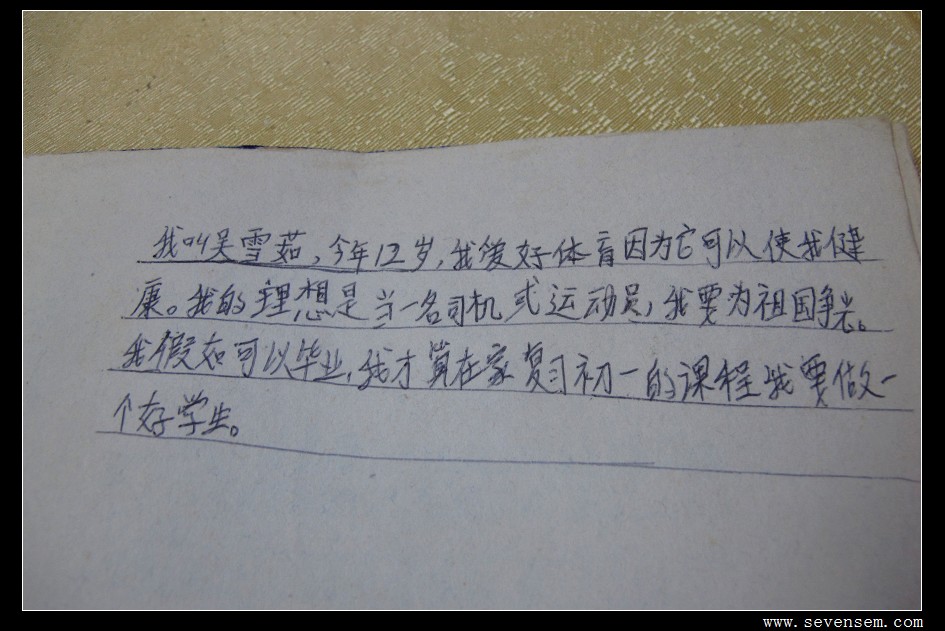 我叫吴雪茹，今年12岁，我爱好体育因为它可以使我健
康。我的理想是当一名司机或运动员，我要为祖国争光。
我假如可以毕业，我才算在家复习初一的课程我要做一
个好学生。
www.sevensem.com